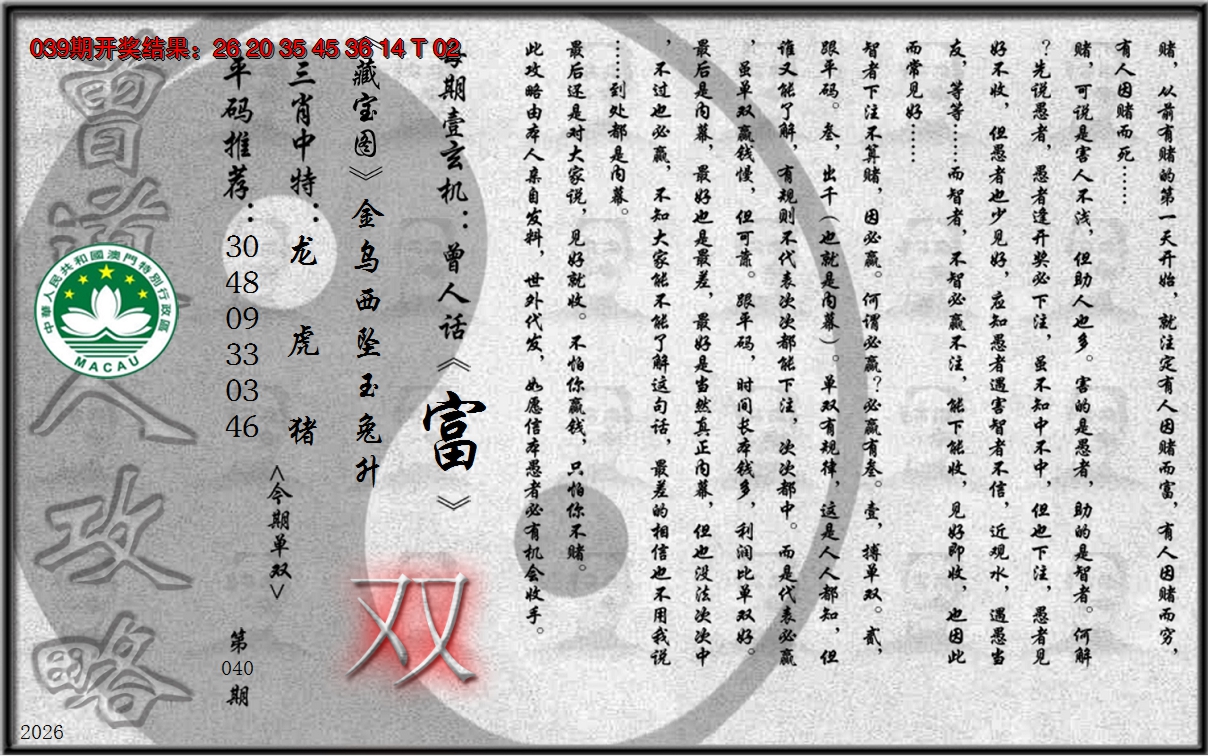 039期开奖结果：26 20 35 45 36 14 T 02
赌，从前有赌的第一天开始，就注定有人因赌而富，有人因赌而穷，
有人因赌而死……
赌，可说是害人不浅，但助人也多。害的是愚者，助的是智者。何解
？先说愚者，愚者逢开奖必下注，虽不知中不中，但也下注，愚者见
好不收，但愚者也少见好，应知愚者遇害智者不信，近观水，遇愚当
友，等等……而智者，不智必赢不注，能下能收，见好即收，也因此
而常见好……
智者下注不算赌，因必赢。何谓必赢？必赢有叁。壹，搏单双。贰，
跟平码。叁，出千（也就是内幕）。单双有规律，这是人人都知，但
谁又能了解，有规则不代表次次都能下注，次次都中。而是代表必赢
，虽单双赢钱慢，但可靠。跟平码，时间长本钱多，利润比单双好。
最后是内幕，最好也是最差，最好是当然真正内幕，但也没法次次中
，不过也必赢，不知大家能不能了解这句话，最差的相信也不用我说
……到处都是内幕。
最后还是对大家说，见好就收。不怕你赢钱，只怕你不赌。
此攻略由本人亲自发料，世外代发，如愿信本愚者必有机会收手。
每期壹玄机：曾人话《富》
《藏宝图》金乌西坠玉兔升
双
三肖中特：龙 虎 猪
<今期单双>
平码推荐：30 48 09 33 03 46
第040期
曾道人攻略
中華人民共和國澳門特別行政區
MACAU
2026